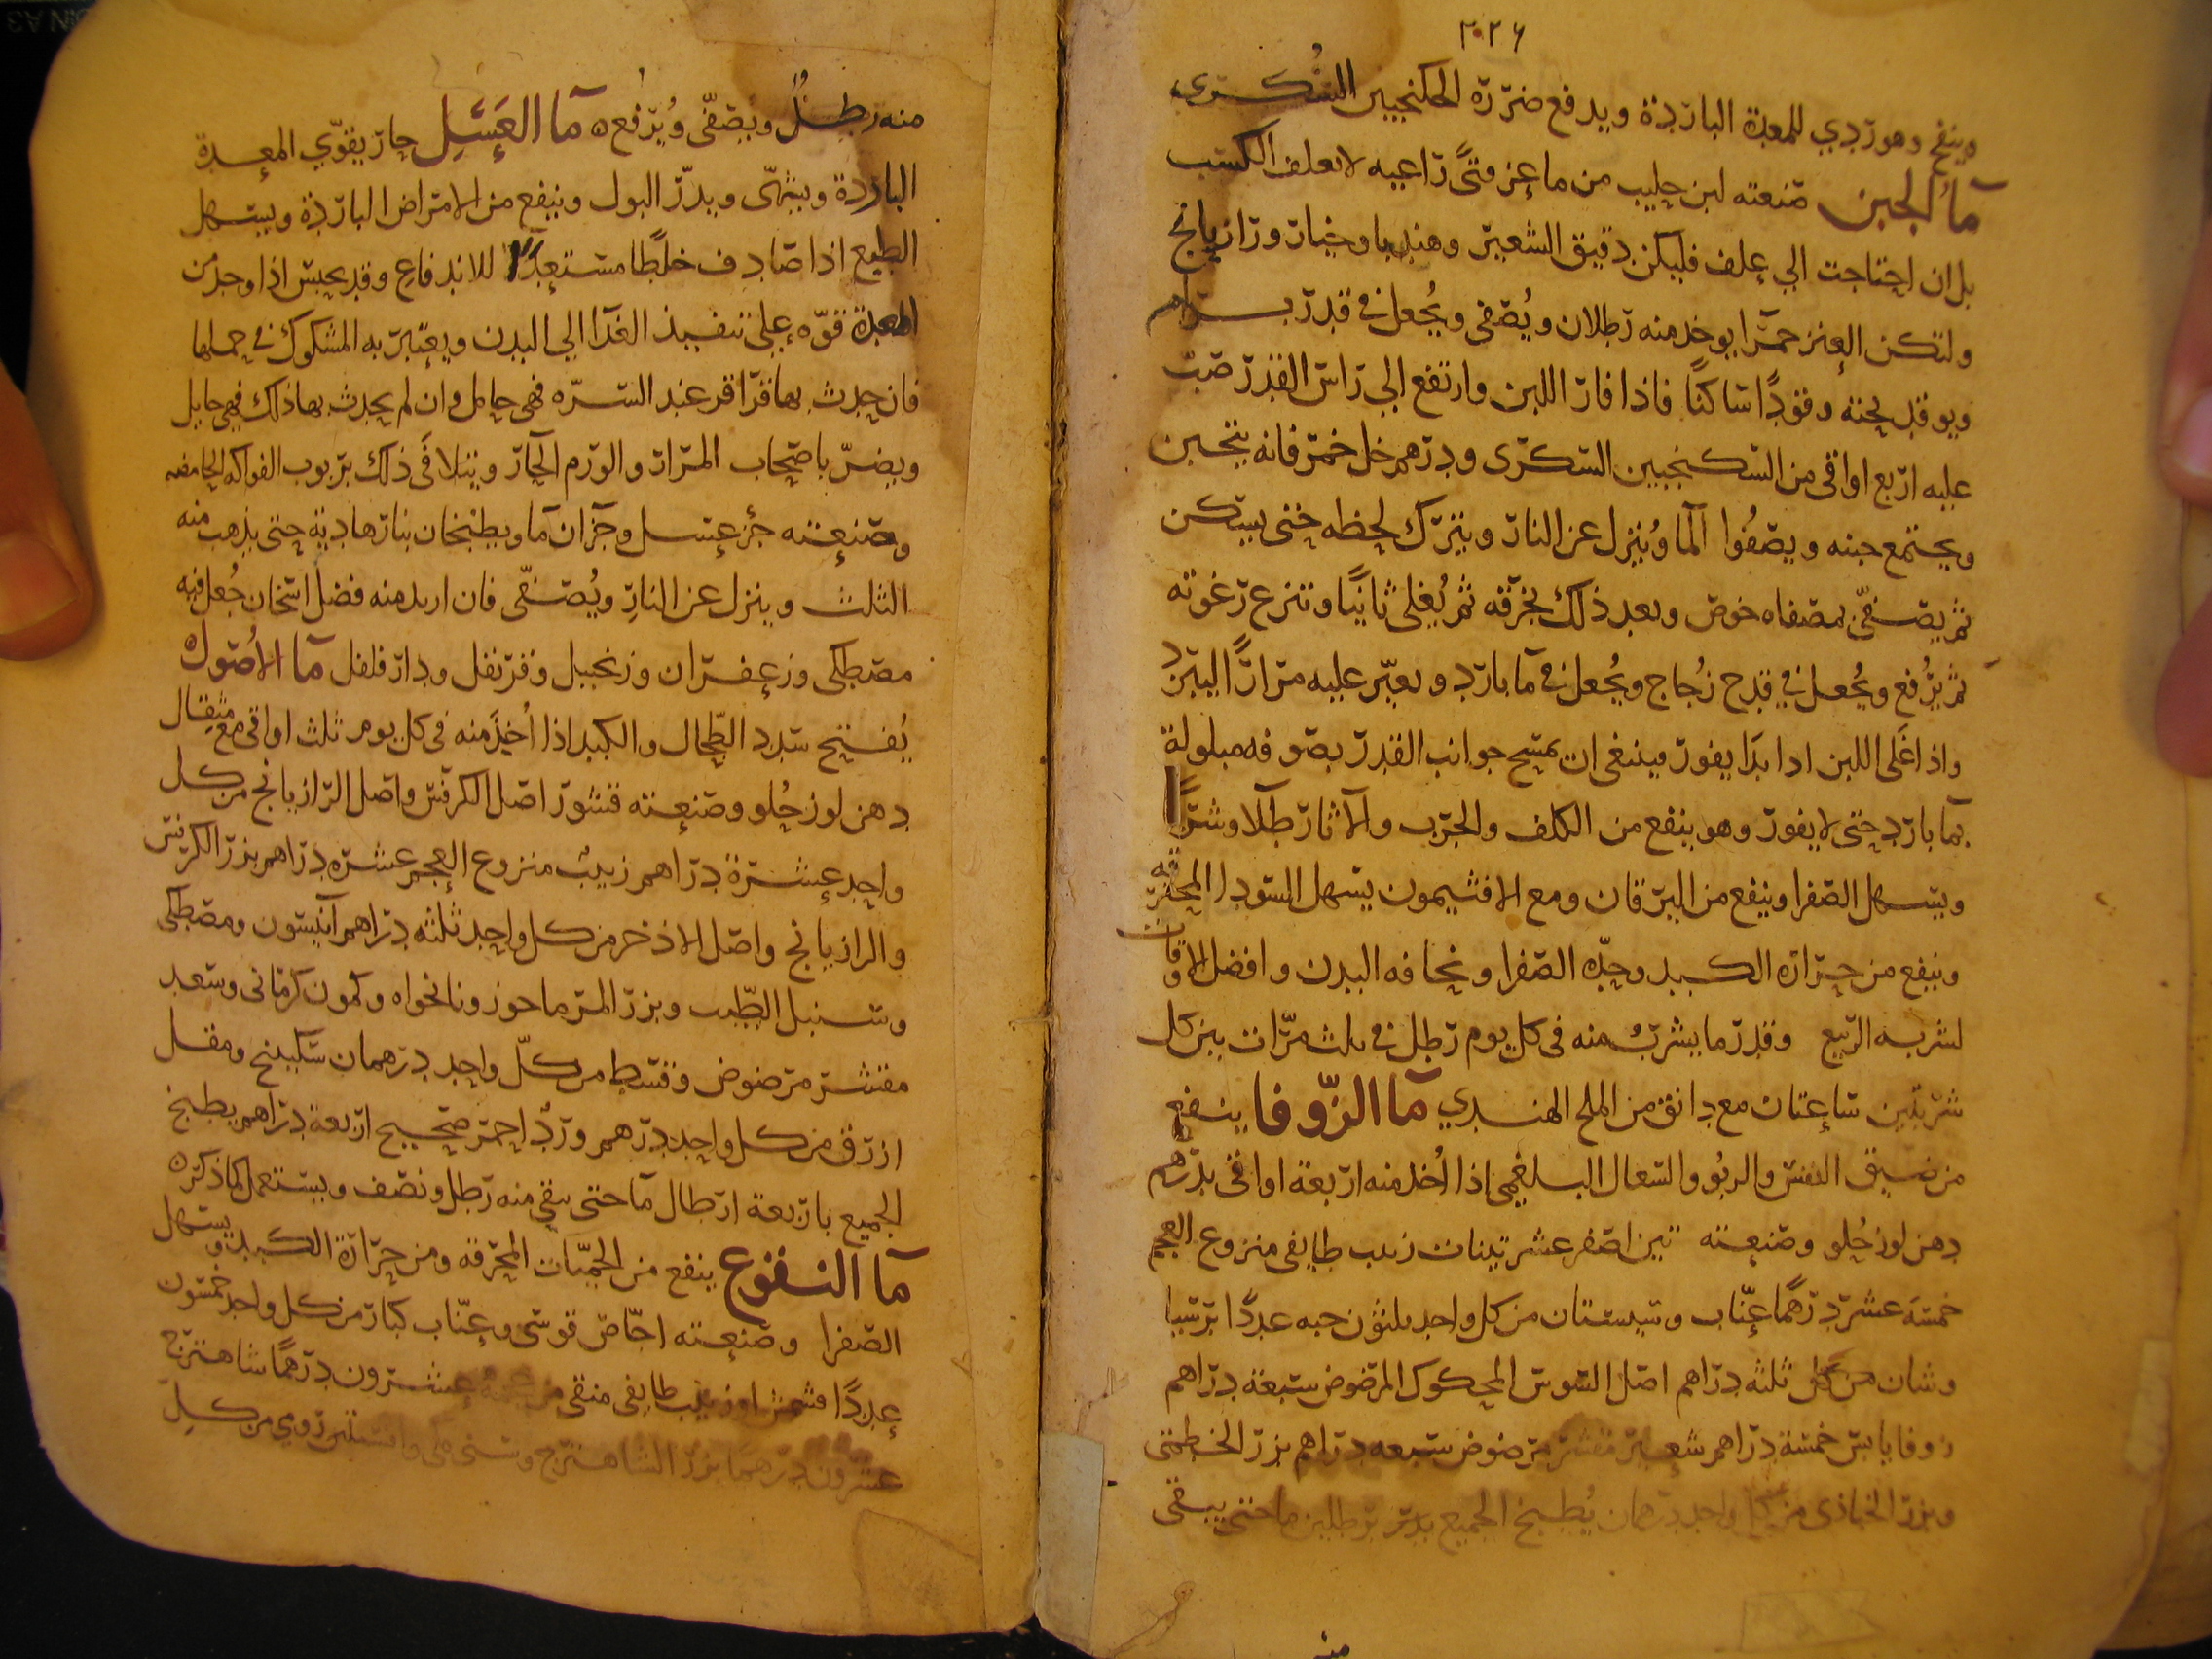 ٢٠٢٦
وينفخ وهو ردي للمعدة الباردة ويدفع ضرره السكنجبين السُكري
مآ الجبن صنعته لبن حليب من ماعز فتىً راعيه لا تعلف الكسب
بل ان احتاجت الي علف فليكن دقيق الشعير وهندبا وخيار ورازيانج
ولتكن العنز حمرا يوخد منه رطلان ويُصفى ويُجعل في قدر برام
ويوقد تحته وقودًا ساكنًا فاذا فار اللبن وارتفع الي راس القدر صبّ
عليه اربع اواقى من السكنجبين السكرى ودرهم خل خمر فانه يتجبن
ويجتمع جبنه ويصفُوا المآ ويُنزل عن النار ويترك لحظه حتى يسكن
ثم يصفىّ بمصفاه خوص وبعد ذلك بخرقه ثم يُغلى ثانيًا وتنزع رغوته
ثم يرُفع ويُجعل في قدح زُجاج ويُجعل في مآ بارد ويغيّر عليه مرارًا ليبرد
واذا غَلى اللبن اذا بدَا يفور فينبغى ان يمسح جوانب القدر بصوفه مبلولة
بمآ بارد حتى لا يفور وهو ينفع من الكلف والجرب والآثار طلآ وشربًا
ويسهل الصفرا وينفع من اليرقان ومع الافثيمون يسهل السودا المحترقه
وينفع من حرارة الكبد وحدّه الصفرا ونحافه البدن وافضل الاوقات
لشربه الربيع وقدر ما يشربُ منه فى كل يوم رطل في ثلث مرّات بين كل
شربتين ساعتان مع دانق من الملح الهندي مآ الزّوفا ينفع
من ضيق النفس والربُو والسعال البلغمى إذا أُخذ منه اربعة اواقى بدرهم
دهن لوز حُلو وصنعته تين اصفر عشر تينات زبيب طايفى منزوع العجم
خمسَة عشر درهمًا عنّاب وسبستان من كل واحد ثلثون حبه عددًا برسيا
وشان من كل ثلثه دراهم اصل السوس المحكوك المرضوض سبعة دراهم
زوفا يابس خمسة دراهم شعير مقشر مرضوض سبعه دراهم بزر الخطمى
وبزر الخبازى من كل واحد درهمان يُطبخ الجميع بعشر برطلين ما حتى يبقى
منه رطلٌ ويُصفّى ويُرفع ٥ مآ العَسَلِ حار يقوّي المعدة
الباردة ويشهّى ويدرّ البول وينفع من الامراض الباردة ويسهل
الطبع اذا صادف خلطًا مستعدًا للاندفاع وقد يحبس اذا وجد من
المعدة قوّه على تنفيذ الغدَا الي البدن ويعتبر به المشكوك في حملها
فان حدث بها قراقر عند السرّه فهى حامل وان لم يحدث بها ذلك فهى حايل
ويضرّ باصحاب المرار والورم الحَار ويتلافَى ذلك بربوب الفواكه الحامضه
وصنعته جزء عسل وجزآن مآ ويطبخان بنار هاديه حتى يذهب منه
الثلث وينزل عن النارِ ويُصفّى فان اريد منه فضل اسخان جُعل فيه
مصطكى وزعفران وزنجبيل وقرنفل ودار فلفل مآ الاُصول ٥
يُفتح سدد الطّحال والكبد اذا أُخِذَ منه فى كل يوم ثلث اواقى مع مثقال
دهن لوز حُلو وصنعته قشور اصل الكرفس واصل الرازيانج من كل
واحد عشرة دراهم زبيبُ منزوع العجم عشره دراهم بزر الكرفس
والرازيانج واصل الاذخر من كل واحد ثلثه دراهم آنيسون ومصطكى
وسنبل الطّيب وبزر المرماحوز ونانخواه وكمون كرمانى وسعد
مقشر مرضوض وقسط من كلّ واحد درهمان سكبينج ومقل
ازرق من كل واحد درهم وردٌ احمر صحيح اربعة دراهم يطبخ
الجميع باربعة ارطال مآ حتى يبقي منه رطل ونصف ويستعمل كما ذكره
مآ النقوع ينفع من الحميّات المحرقه ومن حرارة الكبد ويسهل
الصفرا وصنعته اجّاص قوسى وعنّاب كبار من كل واحد خمسون
عددًا مشمش لوز زبيب طايفى منقى من عجمه عشرون درهمًا شاهترج
عشرون درهمًا بزر الشاهترج وسنى مكى وافسنتين رومي من كل